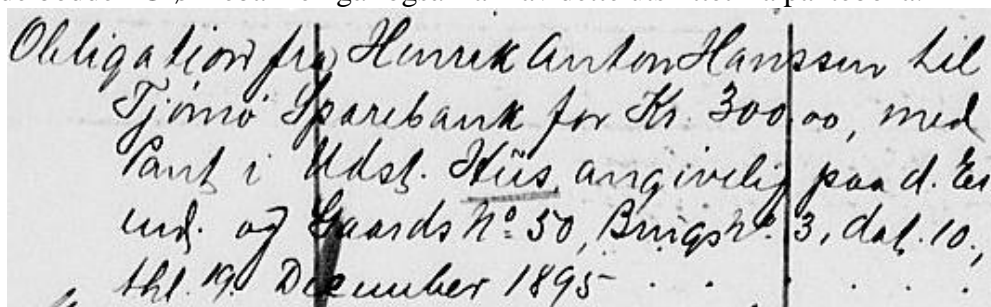 Obligation fra Henrik Anton Hanssen til
Tjømø Sparebank for Kr. 300,00, med
Pant i Udst. Hüs angivelig paa d. Ei
end. og Gaards No 50, Brugs No. 3, dat. 10.,
thl. 19. December 1895 . . . . . .